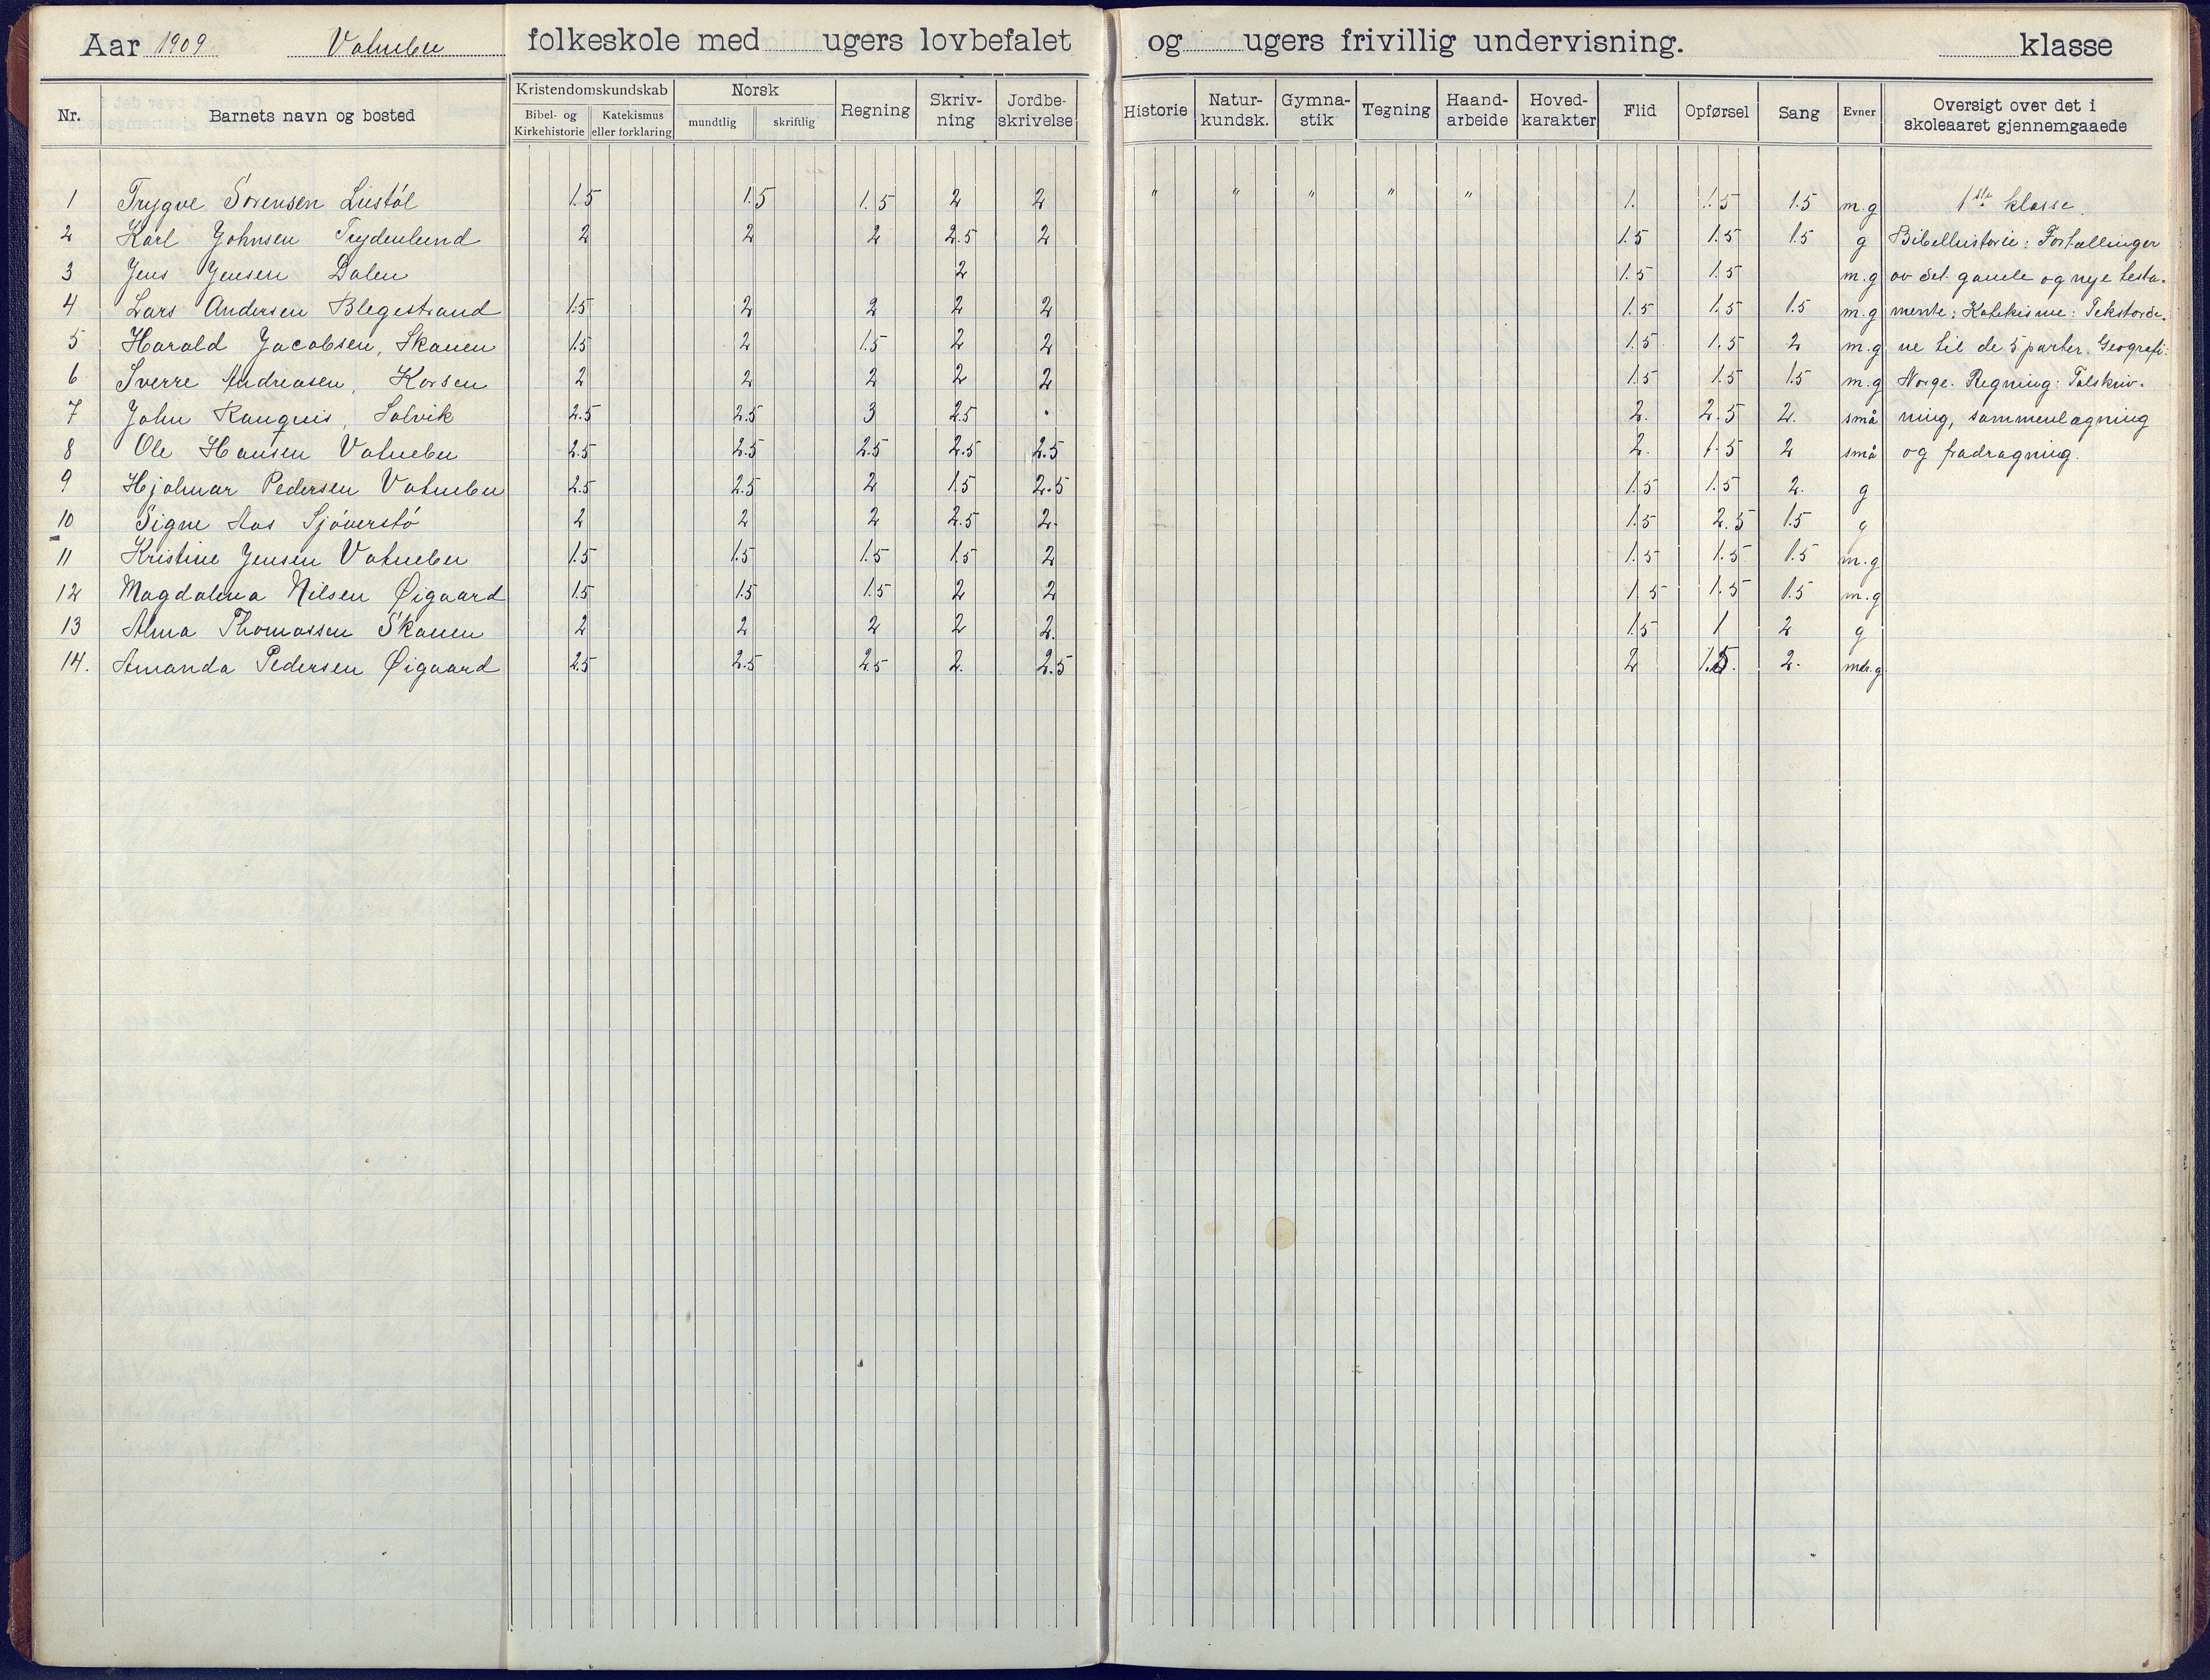 Aar 1909 Vatnebu folkeskole med ugers lovbefalet og ugers frivillig undervisning. klasse
Nr. Barnets navn og bosted Kristendomskundskab Bibel- og Kirkehistorie Katekismus eller forklaring Norsk mundtlig skriftlig Regning Skriv-ning Jordbe-skrivelse Historie Natur-kundsk. Gymna-stik Tegning Haand-arbeide Hoved-karakter Flid Opførsel Sang Evner Oversigt over det i skoleaaret gjennemgaaede
1 Trygve Sørensen Liestøl 1.5 1.5 1.5 2 2 " " " " " 1. 1.5 1.5 m.g 1ste klasse.
2 Karl Johnsen Trydenlund 2 2 2 2.5 2 1.5 1.5 1.5 g Bibelhistorie: Fortællinger
3 Jens Jensen Dalen 2 1.5 1.5 m.g av det gamle og nye testa-
4 Lars Andersen Blegestrand 1.5 2 2 2 2 1.5 1.5 1.5 m.g mente: Katekisme: Tekstorde-
5 Harald Jacobsen, Skauen 1.5 2 1.5 2 2 1.5 1.5 2 m.g ne til de 5 parter. Geografi:
6 Sverre Andreasen, Korsen 2 2 2 2 2 1.5 1.5 1.5 m.g Norge. Regning: Talskriv-
7 John Solvik 2.5 2.5 3 2.5 . 2. 2.5 2. små ning, sammenlægning
8 Ole Hansen Vatnebu 2.5 2.5 2.5 2.5 2.5 2. 1.5 2 små og fradragning.
9 Hjalmar Pedersen Vatnebu 2.5 2.5 2 1.5 2.5 1.5 1.5 2. g
10 Signe Aas Sjöverstö 2 2 2 2.5 2. 1.5 2.5 1.5 g
11 Kristine Jensen Vatnebu 1.5 1.5 1.5 1.5 2 1.5 1.5 1.5 m.g
12 Magdalena Nilsen Øigaard 1.5 1.5 1.5 2 2 1.5 1.5 1.5 m.g
13 Alma Thomassen Skauen 2 2 2 2 2. 1.5 1 2 g
14. Amanda Pedersen Øigaard 2.5 2.5 2.5 2. 2.5 2 1.5. 2. mdr.g